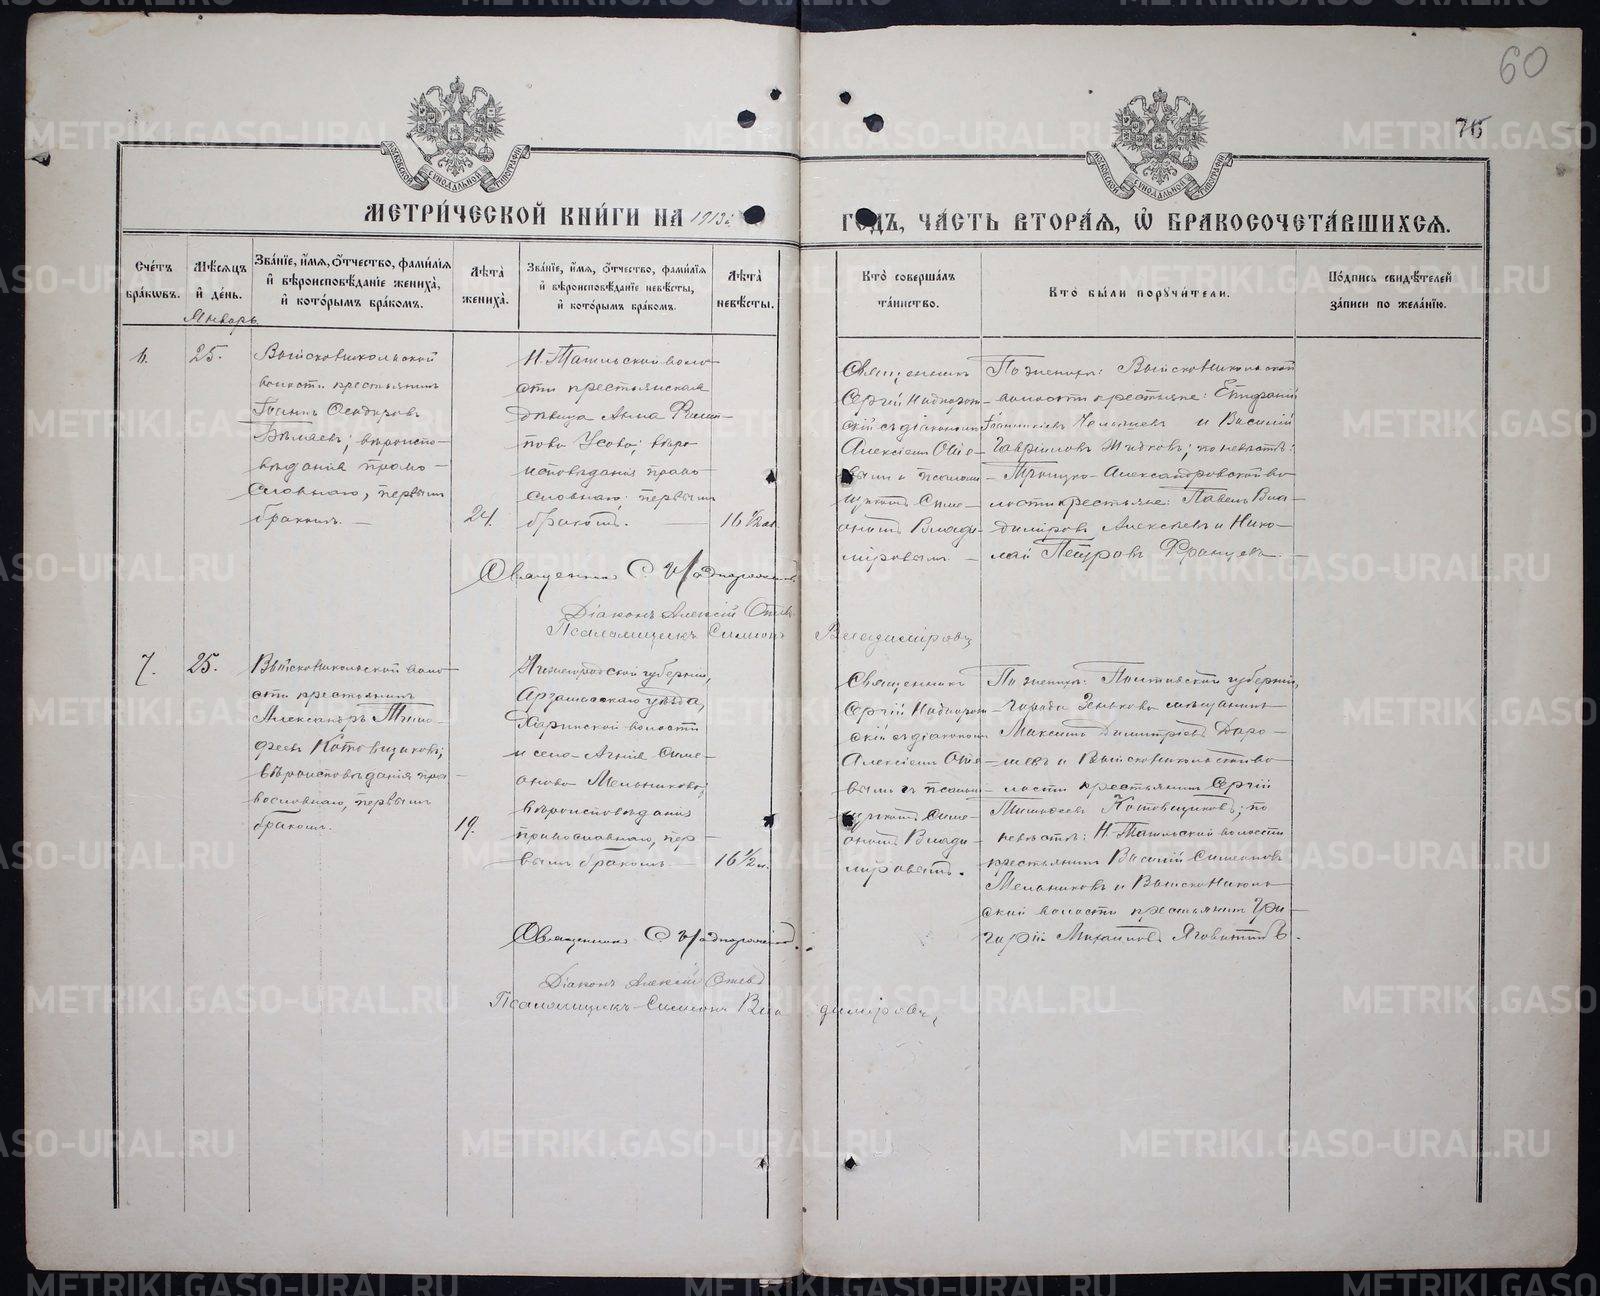 60
75
МОСКОВСКОЙ СѴНОДАЛЬНОЙ ТИПОГРАФІИ
МОСКОВСКОЙ СѴНОДАЛЬНОЙ ТИПОГРАФІИ
МЕТРИ́ЧЕСКОЙ КНИ́ГИ НА 1913й
ГОДЪ, ЧА́СТЬ ВТОРА́Я, Ѽ БРАКОСОЧЕТА́ВШИХСЯ.
Сче́тъ бра́кѡвъ.
Мѣ́сяцъ и҆ де́нь.
Зва́нїе, и҆́мя, о҆́тчество, фами́лїя и҆ вѣроисповѣ́данїе жениха̀, и҆ кото́рымъ бра́комъ.
Лѣ́та̀ жениха̀.
Зва́нїе, и҆́мя, о҆́тчество, фами́лїя и҆ вѣроисповѣ́данїе невѣ́сты, и҆ кото́рымъ бра́комъ.
Лѣ́та̀ невѣ́сты.
Кто̀ соверша́лъ та́инство.
Кто̀ бы́ли порꙋчи́тели.
По́дпись свидѣ́телей за́писи по жела́нїю.
Январь.
6.
25.
Выйсковникольской
волости крестьянинъ
Іоаннъ
Бѣляевъ; вѣроиспо-
вѣданія право-
славнаго, первымъ
бракомъ. —
24.
Н.Тагильской воло-
сти крестьянская
дѣвица Анна Филип-
пова Усова; вѣро-
исповѣданія право-
славнаго; первымъ
бракомъ. —
16 1/2 л.
Священникъ
Сергій Надпорож-
скій съ діакономъ
Алексіемъ Отѣв-
вымъ и псалом-
щикомъ Симе-
ономъ Влади-
міровымъ —
По женихѣ: Выйсковникольской
волости крестьяне: Епифаній
и Василій
Гавриловъ Жидковъ; по невѣстѣ:
Троицко-Александровской во-
лости крестьяне: Павелъ Вла-
диміровъ Алексѣевъ и Нико-
лай Петровъ Францевъ. —
Священникъ С. Надпорожскій
Діаконъ Алексій
Псаломщикъ Симеонъ Владиміровъ
7.
25.
Выйсковникольской воло-
сти крестьянинъ
Александръ Тимо-
феевъ Котовщиковъ;
вѣроисповѣданія пра-
вославнаго, первымъ
бракомъ.
19.
Нижегородской губерніи,
Арзамасскаго уѣзда,
волости
и села Агнія Симе-
онова Мельникова;
вѣроисповѣданія
православнаго, пер-
вымъ бракомъ. —
16 1/2 л.
Священникъ
Сергій Надпорож-
скій съ діакономъ
Алексіемъ Отѣв-
вымъ съ псалом-
щикомъ Симе-
ономъ Влади-
міровымъ.
По женихѣ: Полтавской губерніи,
города Зенькова мѣщанинъ
Максимъ Димитріевъ Даро-
шевъ и Выйсковникольской во-
лости крестьянинъ Сергій
Тимофеевъ Котовщиковъ; по
невѣстѣ: Н.Тагильской волости
крестьянинъ Василій Симеоновъ
Мельниковъ и Выйсковниколь-
ской волости крестьянинъ Гри-
горій Михаиловъ
Священникъ С. Надпорожскій.
Діаконъ Алексій
Псаломщикъ Симеонъ Владиміровъ,
METRIKI.GASO-URAL.RU